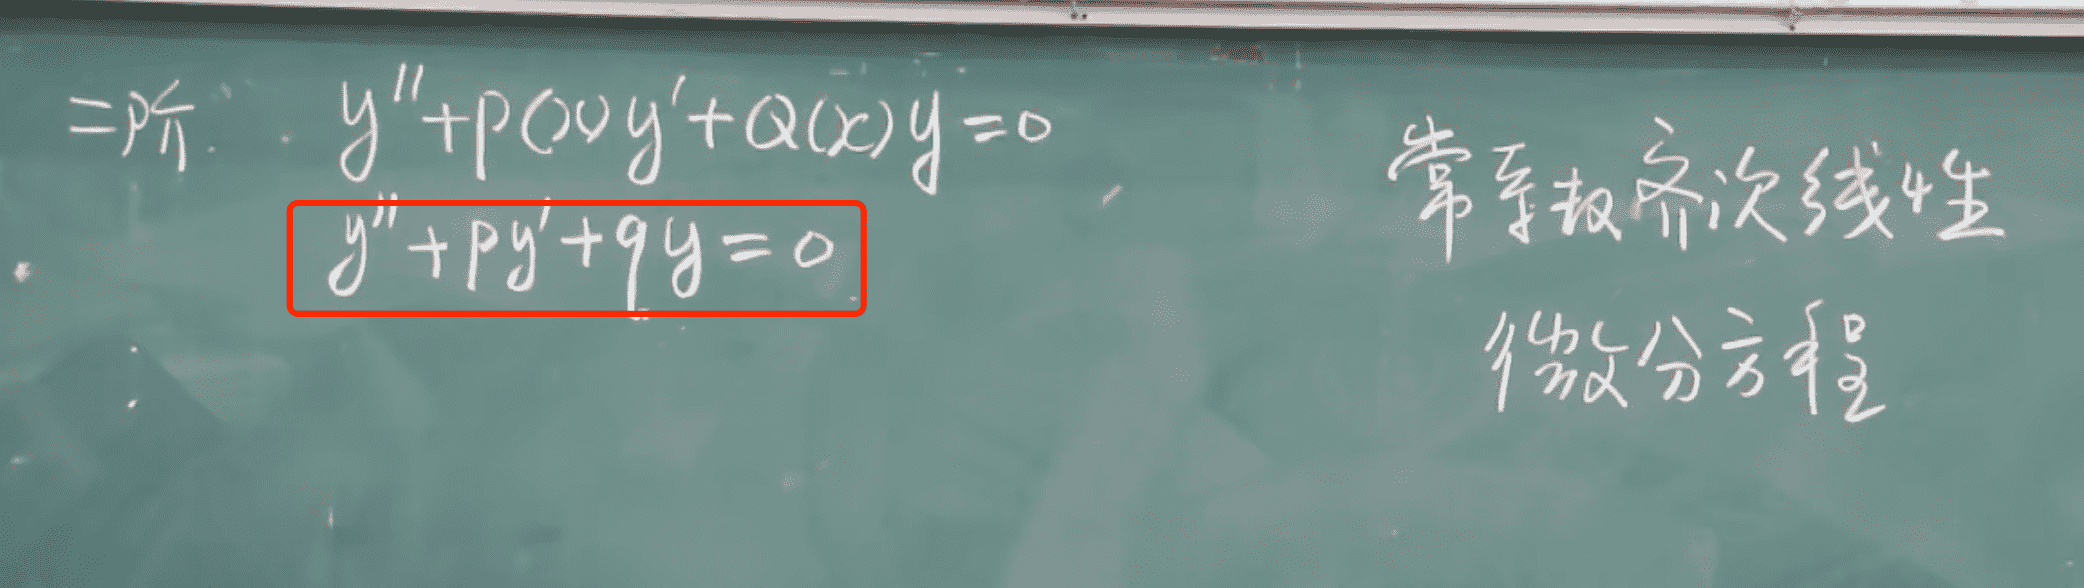 二阶. y''+P(x)y'+Q(x)y=0
y''+py'+qy=0
常系数齐次线性
微分方程